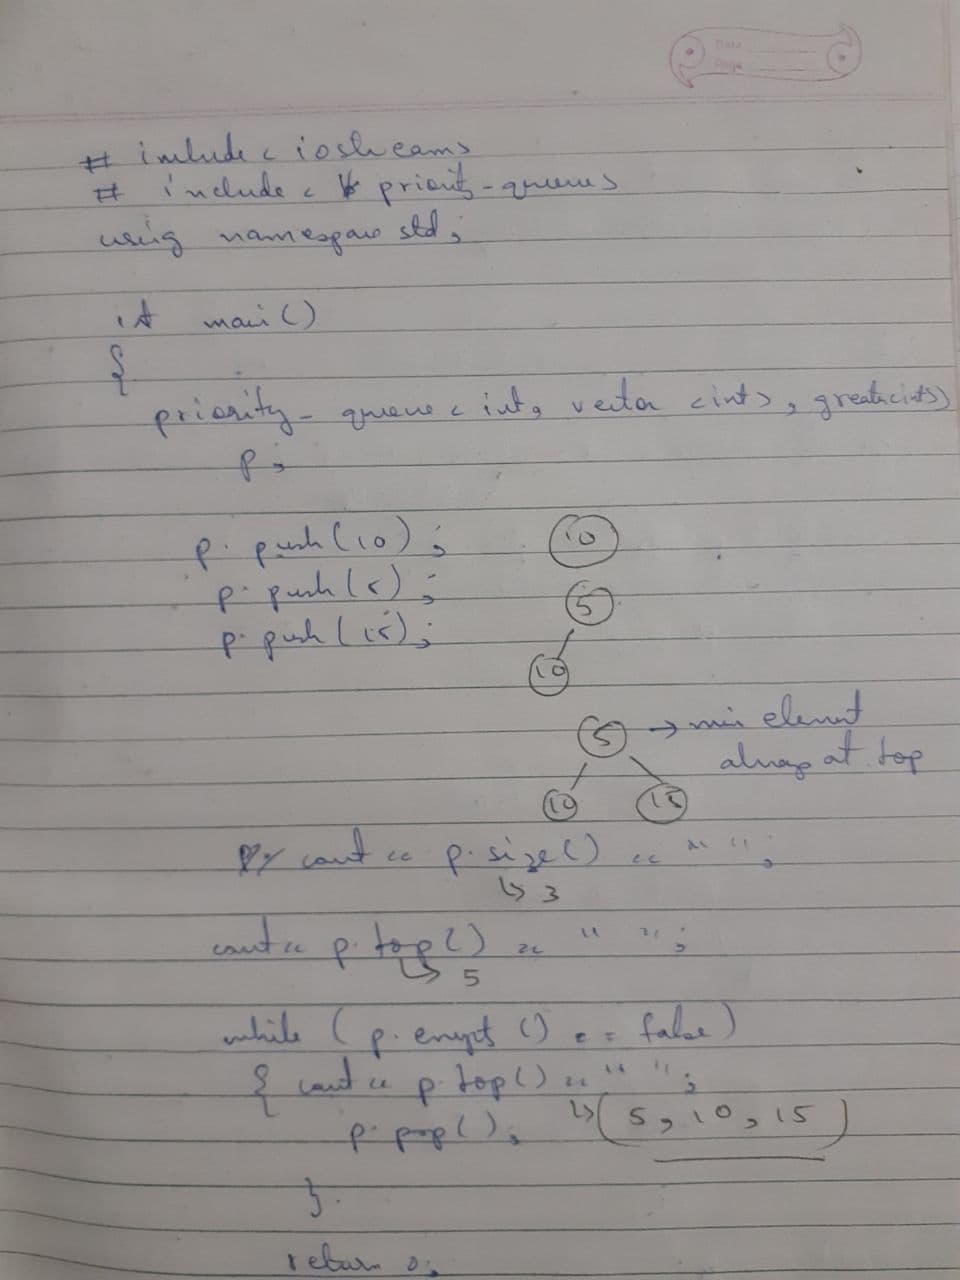 Date
Page
# include < iostream>
# include < priority-queue>
using namespace std;
int main()
{
priority- queue < int, vector <int>, greater<int>>
p;
p. push(10); 10
p. push(5); 5
p. push(15);
10
5 → min element
always at top
10 15
cout << p. size() << " ";
↳ 3
cout << p. top() << " ";
↳ 5
while ( p. empty () == false)
{ cout << p. top() << " ";
p. pop(); ↳ ( 5, 10, 15 )
}
return 0;